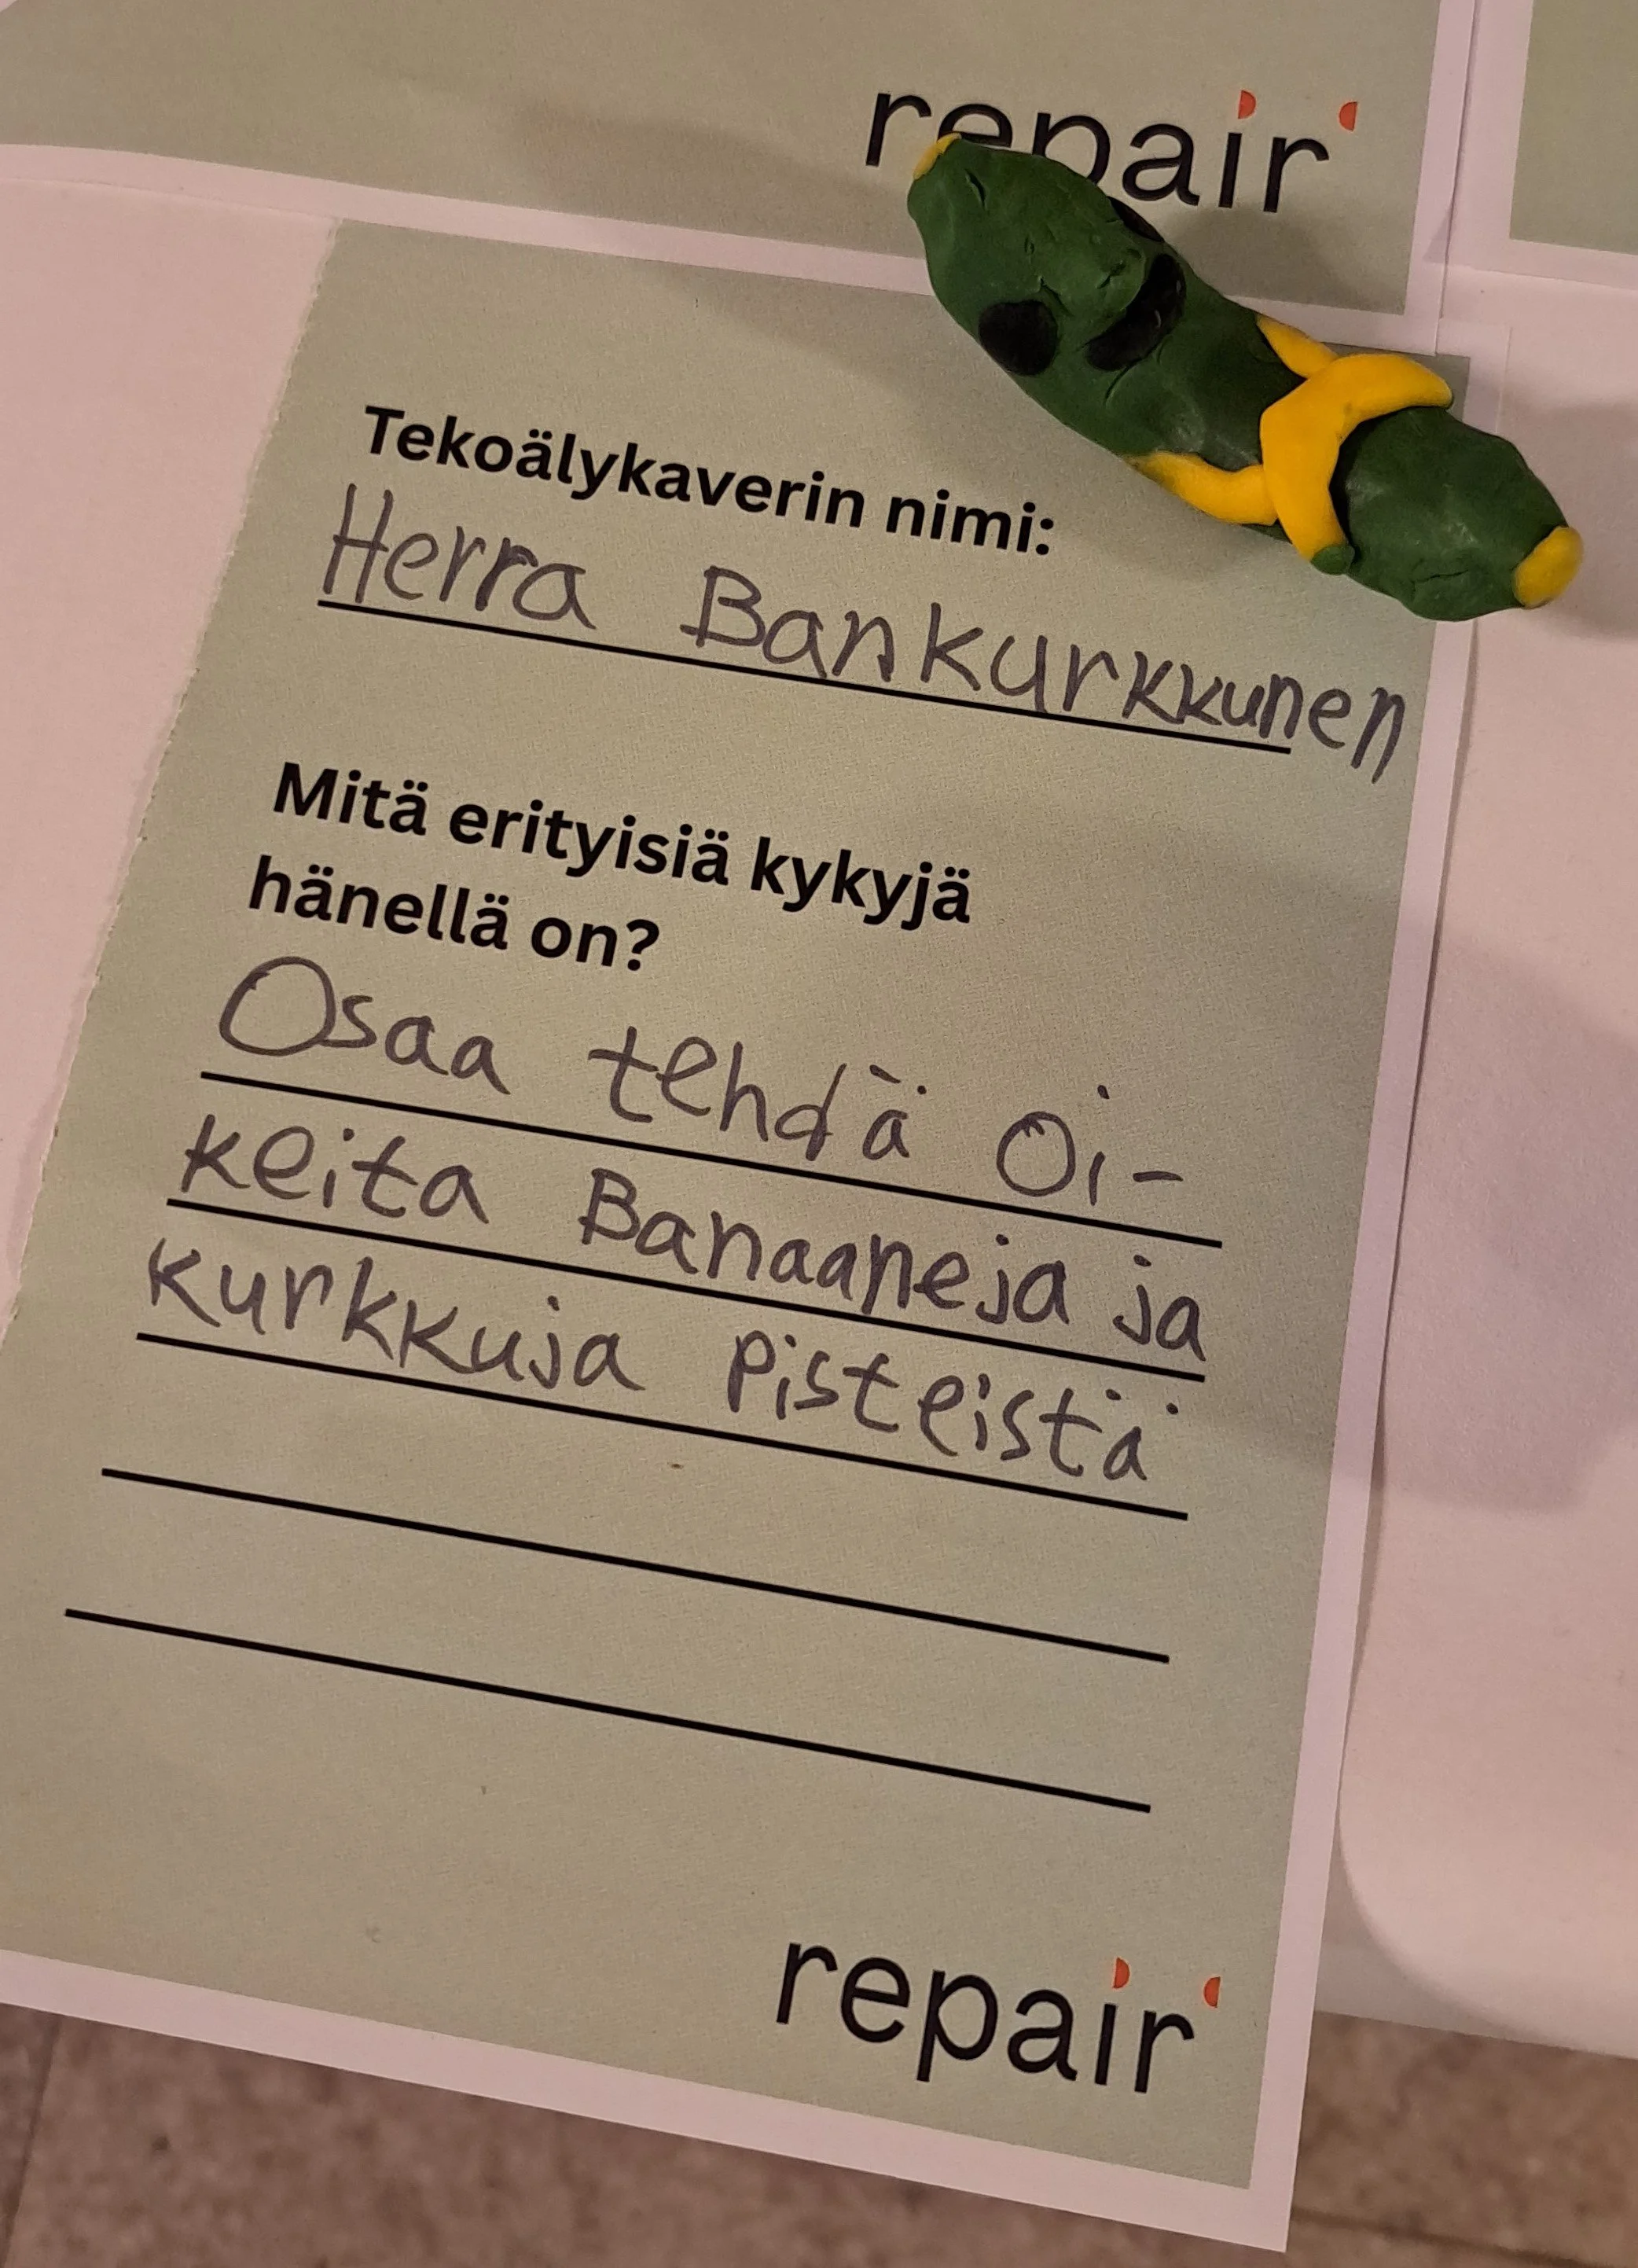 repair
Tekoälykaverin nimi:
Herra Bankurkkunen
Mitä erityisiä kykyjä
hänellä on?
Osaa tehdä oi-
keita Banaaneja ja
kurkkuja pisteistä
repair